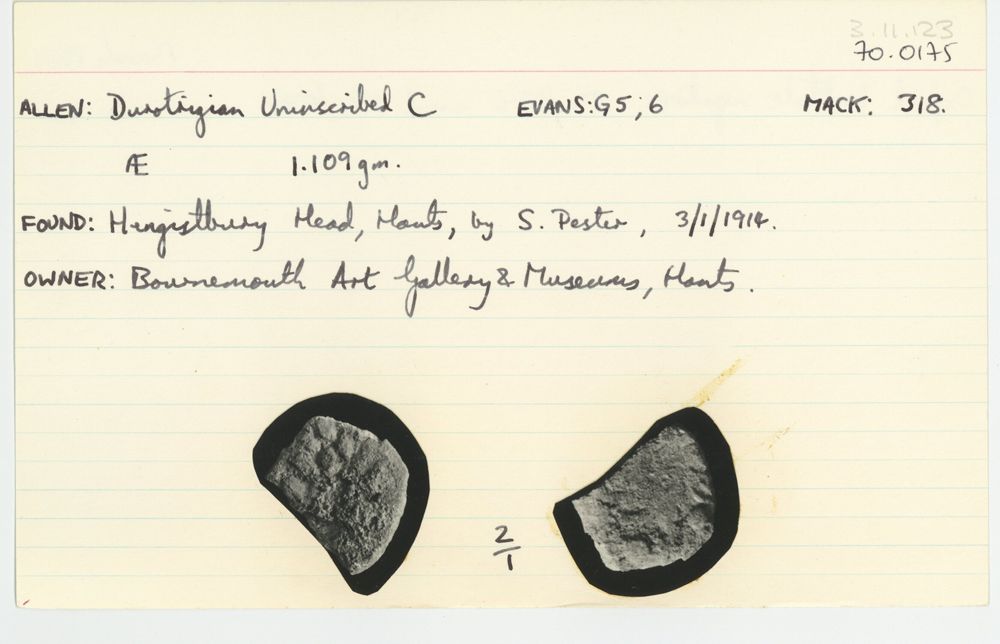 3.11.123
70.0175
ALLEN: Durotrigian Uninscribed C EVANS: G5; 6 MACK: 318.
Æ 1.109 gm.
FOUND: Hengistbury Head, Hants, by S. Pester, 3/1/1914.
OWNER: Bournemouth Art Gallery & Museums, Hants.
2
1